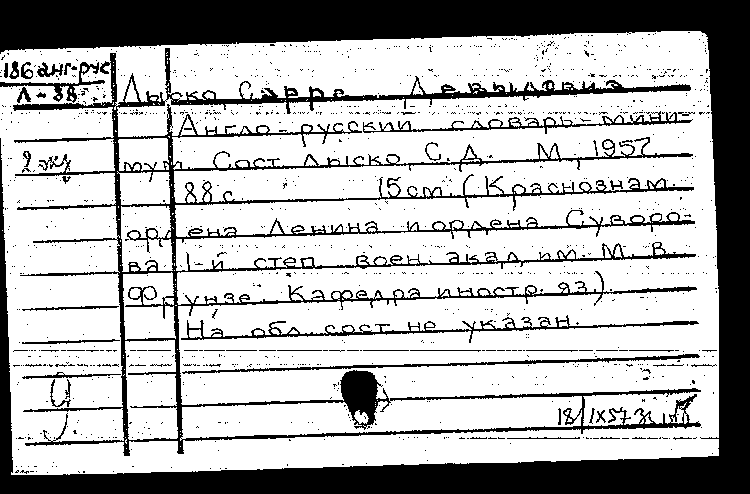 186 анг-рус
Л-88
Лыско, Сарра Давыдовна
Англо-русский словарь-мини-
2 экз
мум. Сост. Лыско, С. Д. М., 1957.
88 с. 15 см. (Краснознам.
ордена Ленина и ордена Суворо-
ва 1-й степ. воен. акад. им. М. В.
Фрунзе. Кафедра иностр. яз.).
На обл. сост. не указан.
18/IX57